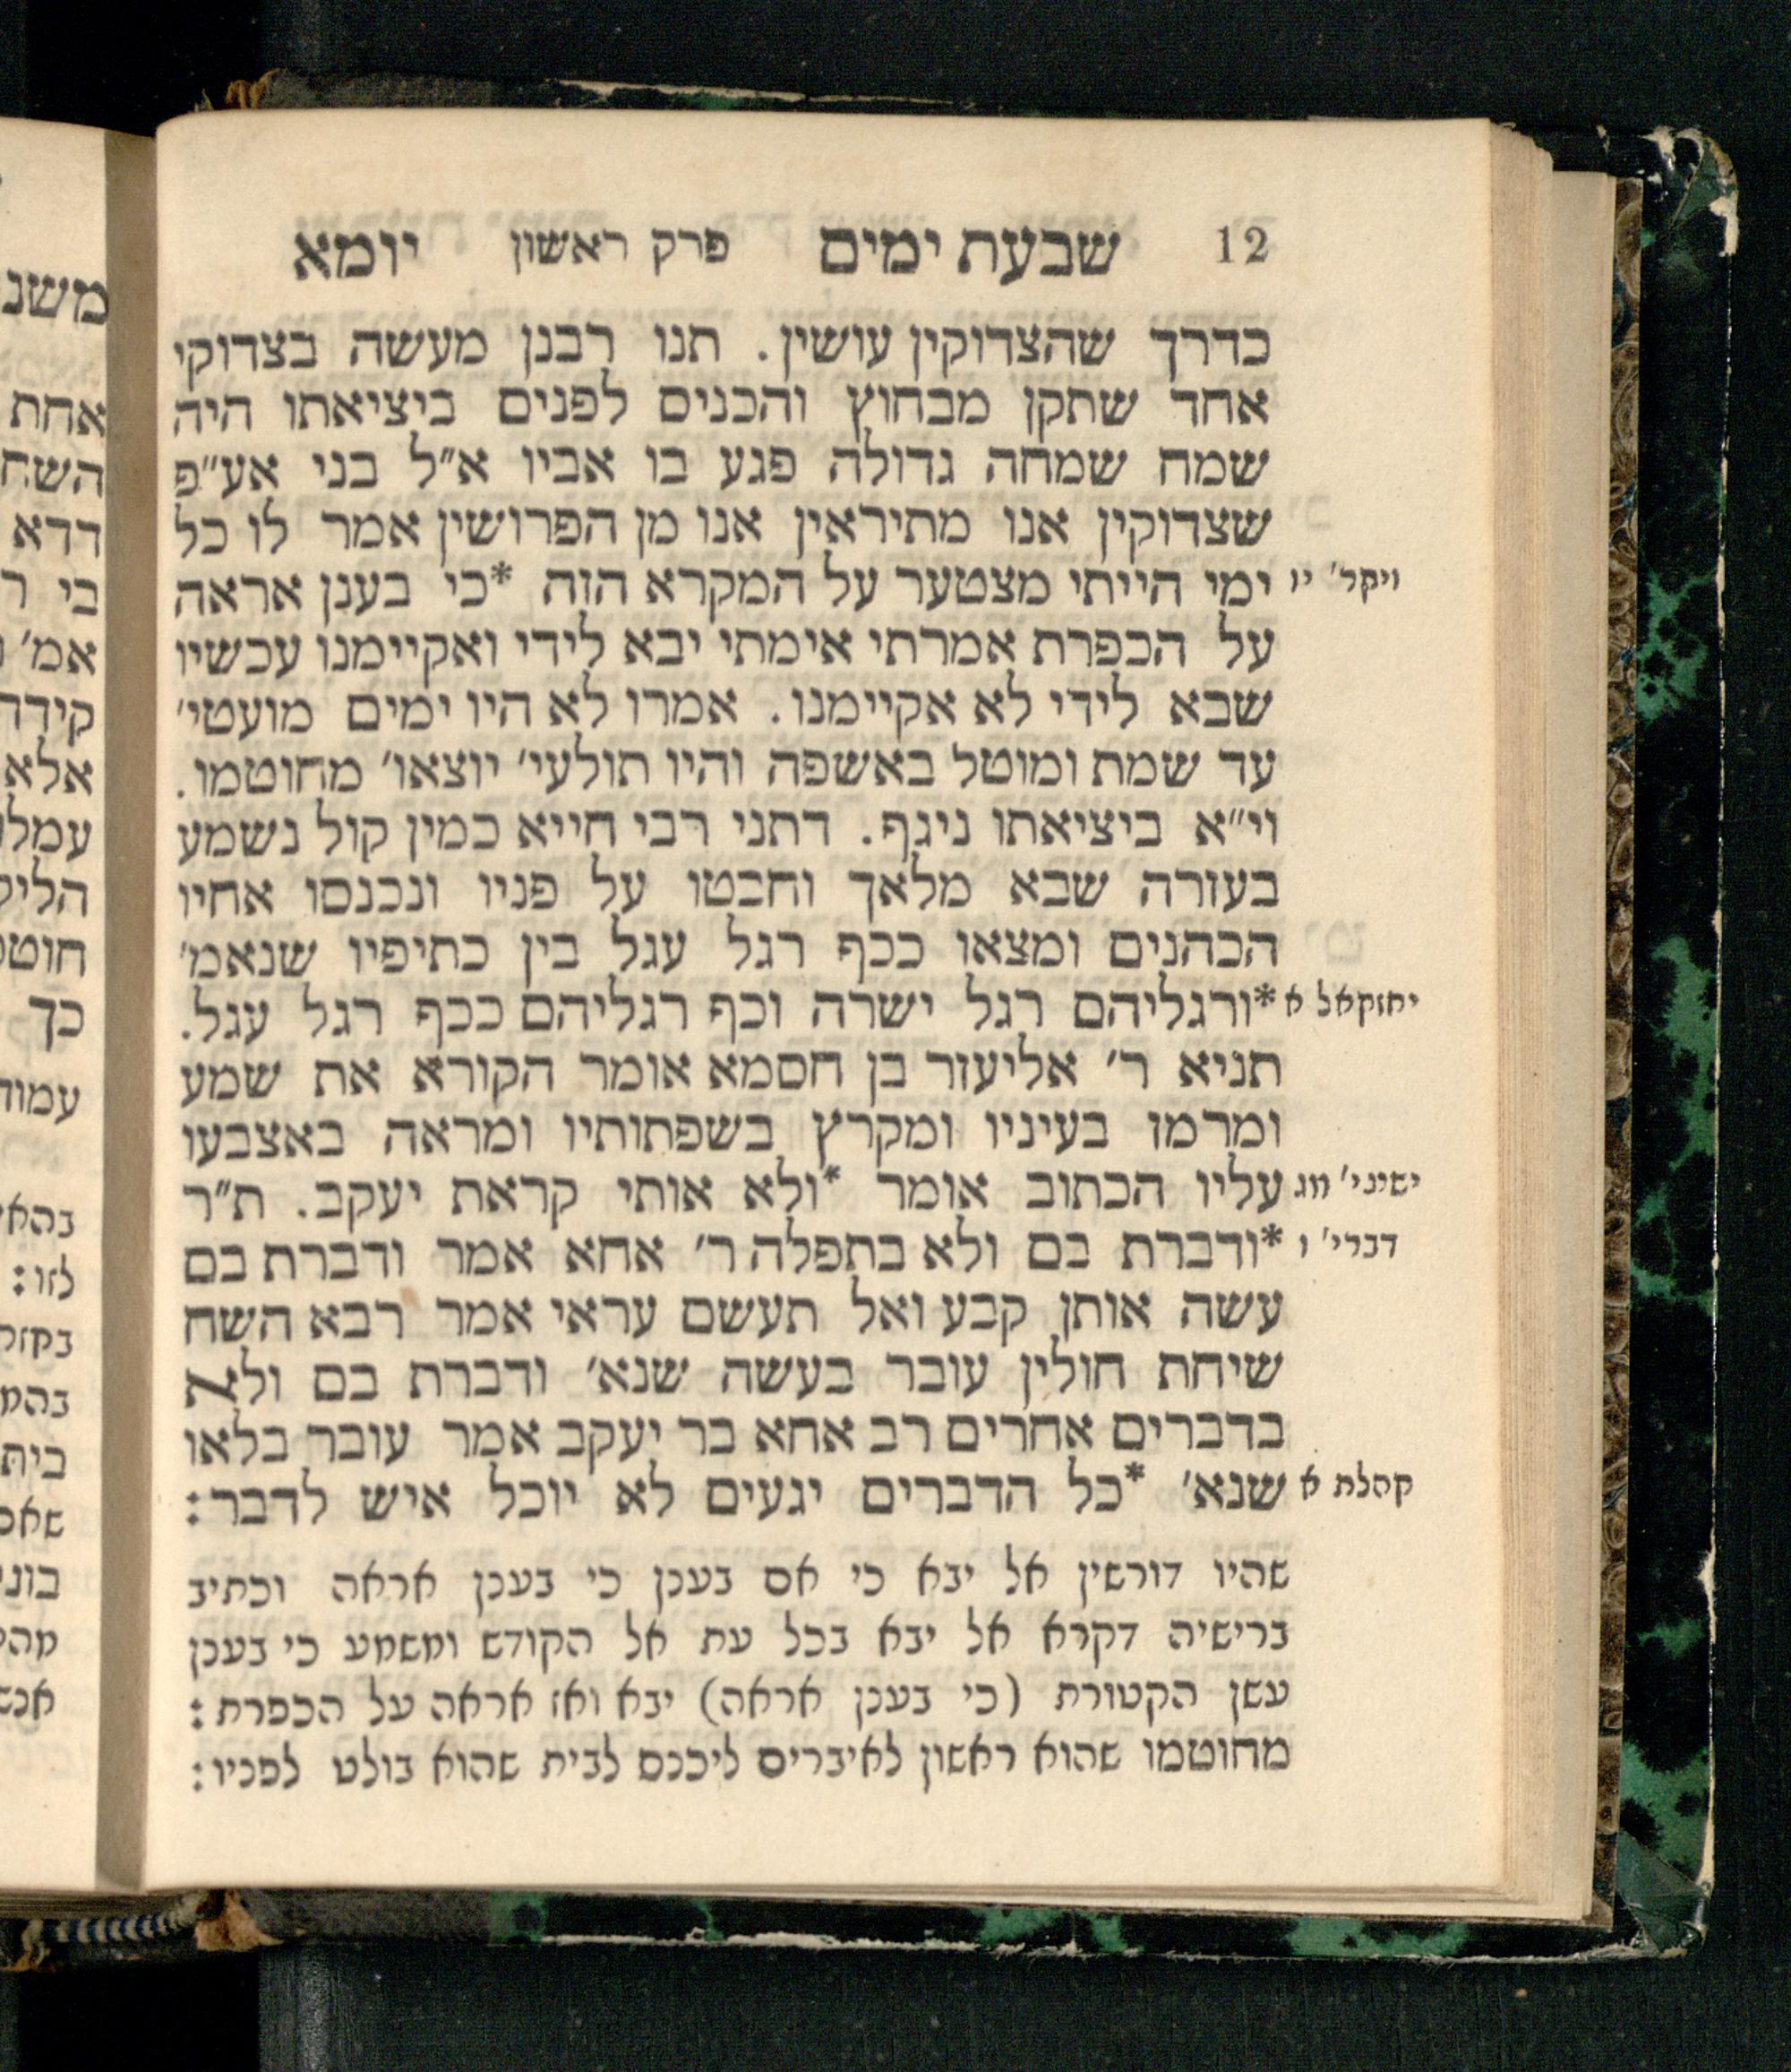 12 שבעת ימים פרק ראשון יומא
כדרך שהצדוקין עושין. תנו רבנן מעשה בצדוקי
אחד שתקן מבחוץ והכניס לפנים ביציאתו היה
שמח שמחה גדולה פגע בו אביו א״ל בני אע״פ
שצדוקין אנו מתיראין אנו מן הפרושין אמר לו כל
ויקר׳ יו ימי הייתי מצטער על המקרא הזה *כי בענן אראה
על הכפרת אמרתי אימתי יבא לידי ואקיימנו עכשיו
שבא לידי לא אקיימנו. אמרו לא היו ימים מועטי׳
עד שמת ומוטל באשפה והיו תולעי׳ יוצאו׳ מחוטמו.
וי״א ביציאתו ניגף. דתני רבי חייא כמין קול נשמע
בעזרה שבא מלאך וחבטו על פניו ונכנסו אחיו
הכהנים ומצאו ככף רגל עגל בין כתיפיו שנאמ׳
יחזקאל א *ורגליהם רגל ישרה וכף רגליהם ככף רגל עגל.
תניא ר׳ אליעזר בן חסמא אומר הקורא את שמע
ומרמז בעיניו ומקרץ בשפתותיו ומראה באצבעו
ישיגי׳ מג עליו הכתוב אומר *ולא אותי קראת יעקב. ת״ר
דברי׳ ו *ודברת בם ולא בתפלה ר׳ אחא אמר ודברת בם
עשה אותן קבע ואל תעשם עראי אמר רבא השח
שיחת חולין עובר בעשה שנא׳ ודברת בם ולא
בדברים אחרים רב אחא בר יעקב אמר עובר בלאו
קהלת א שנא׳ *כל הדברים יגעים לא יוכל איש לדבר:
שהיו דורשין אל יבא כי אם בענן כי בענן אראה וכתיב
ברישיה דקרא אל יבא בכל עת אל הקודש ומשמע כי בענן
עשן הקטורת (כי בענן אראה) יבא ואז אראה על הכפרת:
מחוטמו שהוא ראשון לאיברים ליכנס לבית שהוא בולט לפניו: